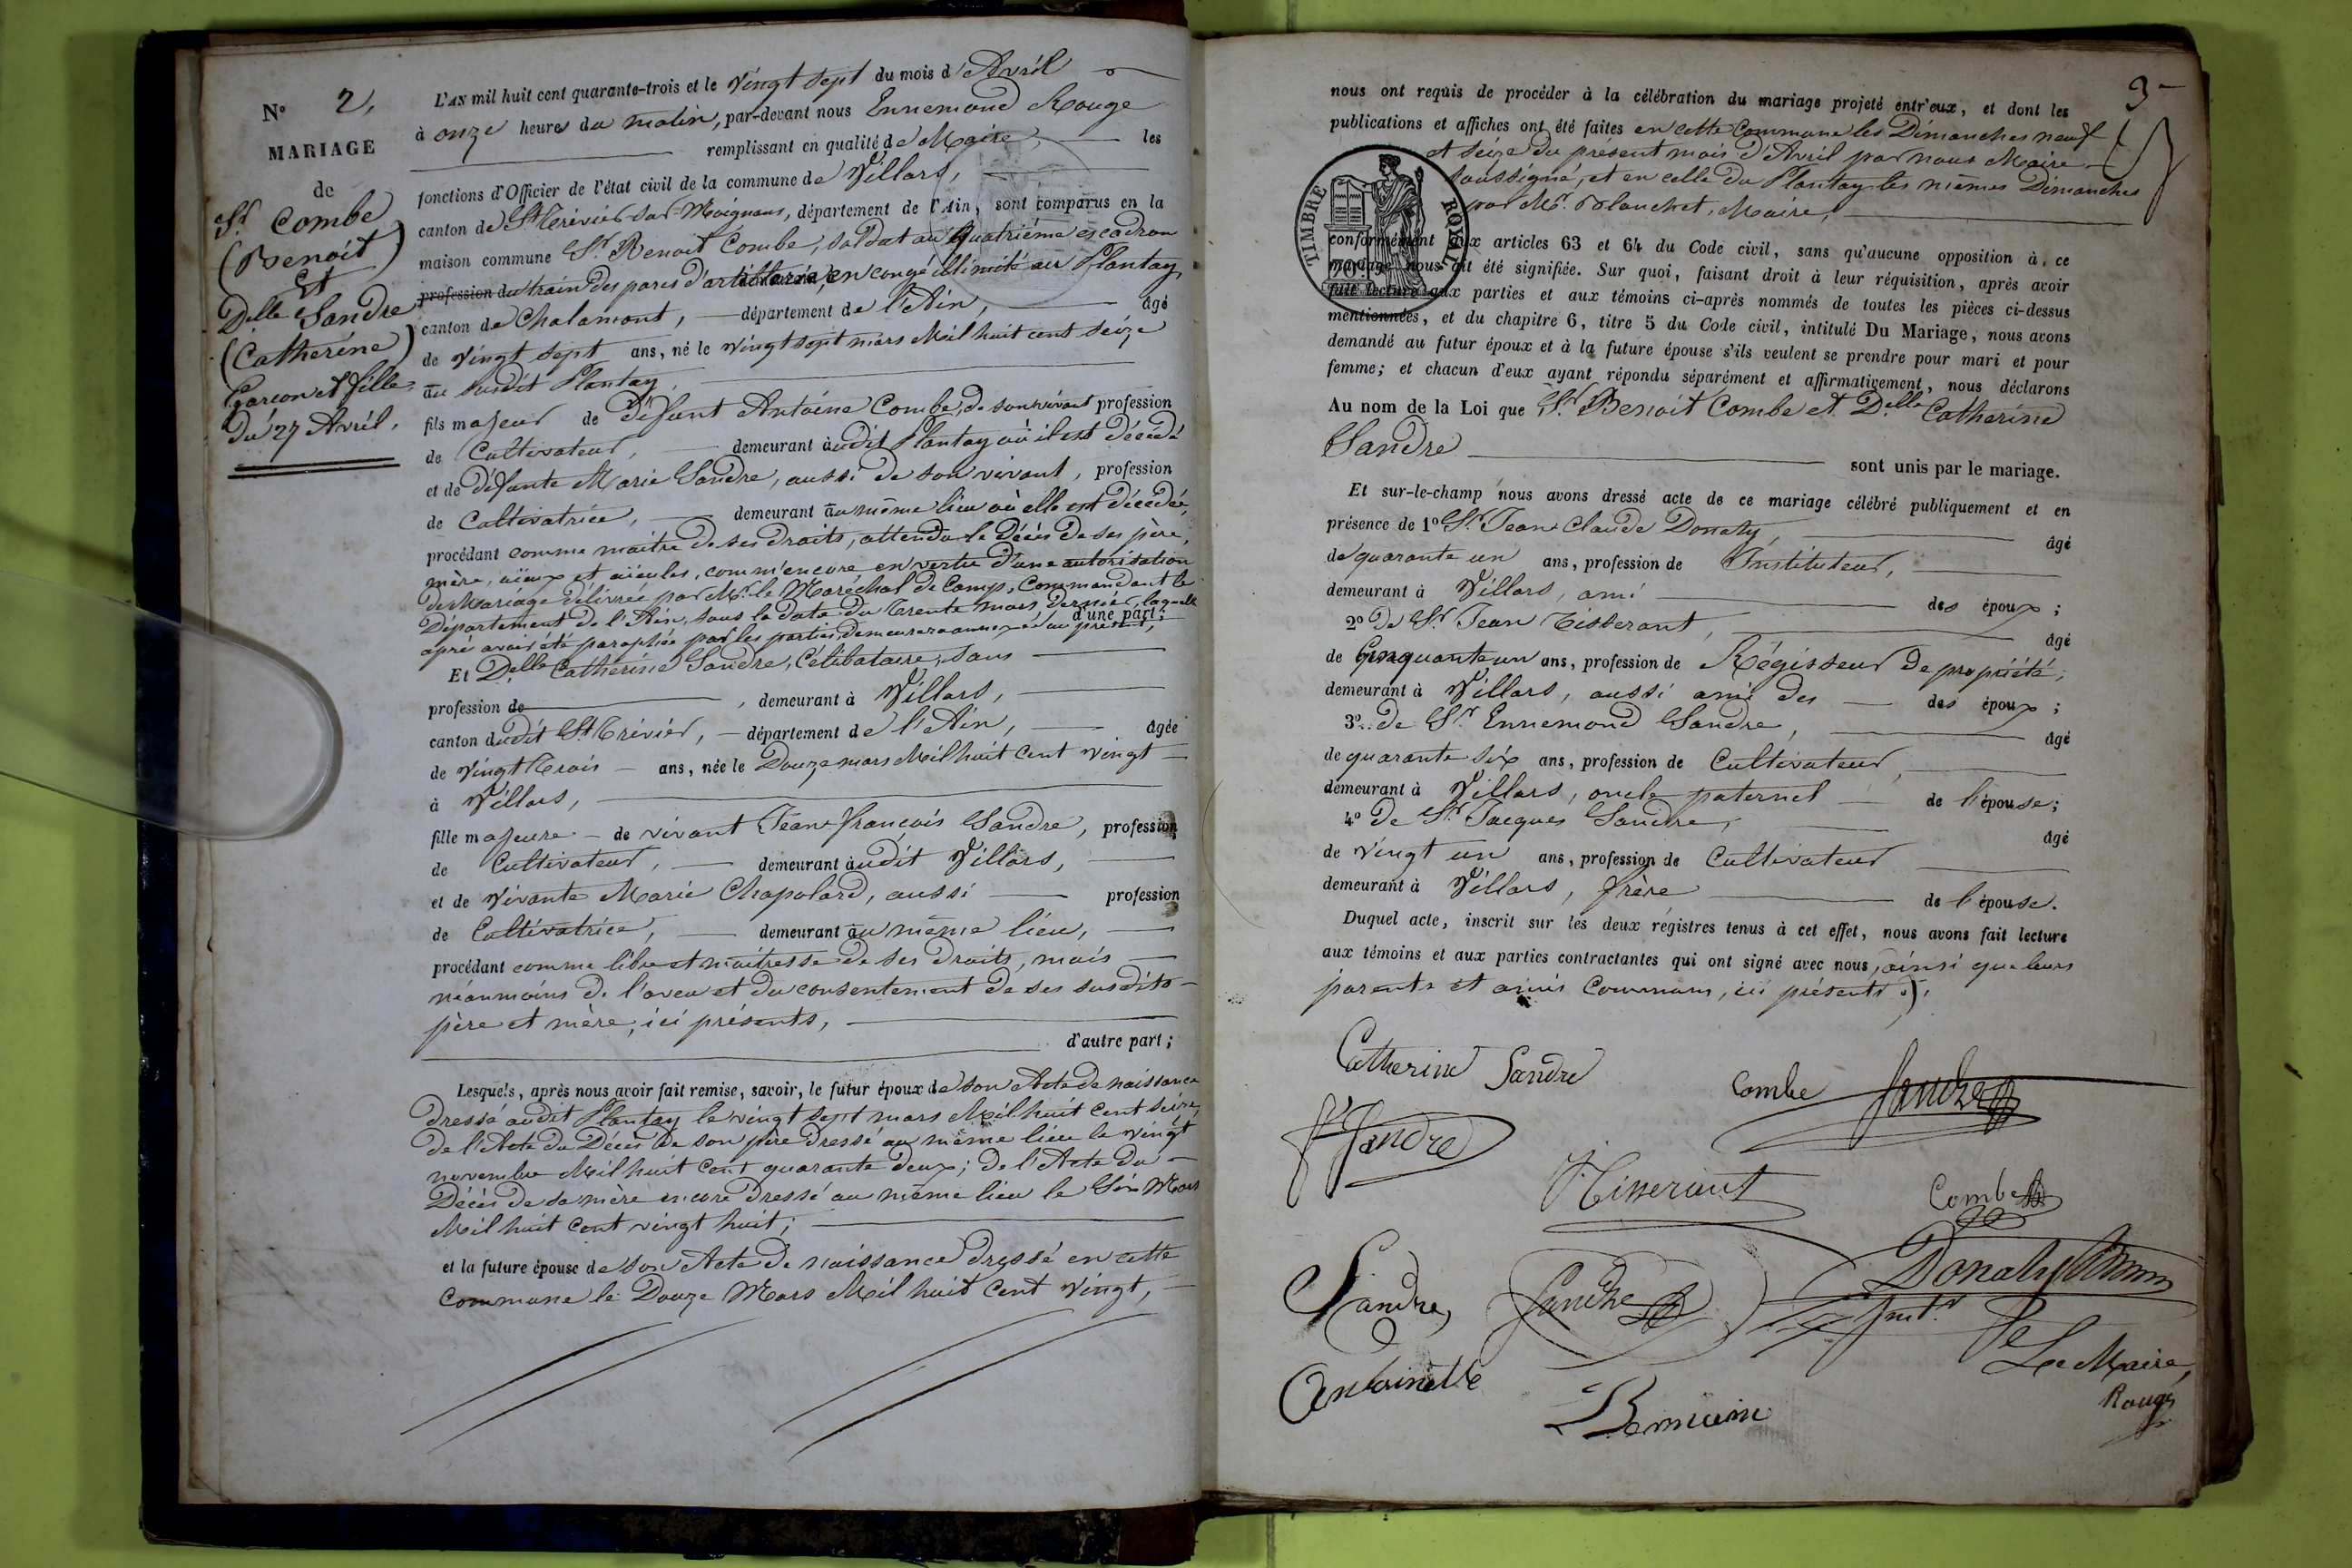 N° 2,
MARIAGE
de
Sr. Combe
(Benoit)
Et
Delle Sandre
(Catherine)
Garcon et fille
Du 27 Avril.
L'AN mil huit cent quarante-trois et le vingt sept du mois d'Avril
à onze heures du matin, par-devant nous Ennemond Rouge
remplissant en qualité de Maire, les
fonctions d'Officier de l'état civil de la commune de Villars,
canton de St Trivier sur Moignans, département de l'Ain, sont comparus en la
maison commune Sr. Benoit Combe, soldat au quatrième escadron
profession du train des parcs d'artillerie, en congé illimité au Plantay,
canton de Chalamont, département de l'Ain, âgé
de vingt sept ans, né le vingt sept mars Mil huit cent seize
au susdit Plantay,
fils majeur de défunt Antoine Combe, de son vivant profession
de Cultivateur, demeurant audit Plantay où il est décédé
et de défunte Marie Sandre, aussi de son vivant, profession
de Cultivatrice, demeurant au même lieu où elle est décédée,
procédant comme maitre de ses droits, attendu le Décès de ses père,
mère, aïeux et aïeules, comm'encore en vertu d'une autorisation
de Mariage délivrée par Mr. le Maréchal de Camp, Commandant le
Département de l'Ain, sous la date du trente mars dernier, laquelle
après avoir été paraphée par les parties demeurera annexée au présent, d'une part;
Et Delle Catherine Sandre, Célibataire, sans
profession de , demeurant à Villars,
canton dudit St Trivier, département de l'Ain, âgée
de vingt trois ans, née le Douze mars Mil huit cent vingt
à Villars,
fille majeure de vivant Jean françois Sandre, profession
de Cultivateur, demeurant audit Villars,
et de vivante Marie Chapolard, aussi profession
de Cultivatrice, demeurant au même lieu,
procédant comme libre et maitresse de ses droits, mais
néanmoins de l'aveu et du consentement de ses susdits
père et mère, ici présents,
d'autre part;
Lesquels, après nous avoir fait remise, savoir, le futur époux de son Acte de naissance
Dressé audit Plantay le vingt sept mars Mil huit cent seize,
de l'Acte du Décès de son père dressé au même lieu le vingt
novembre Mil huit cent quarante deux; de l'Acte du
Décès de sa mère encore dressé au même lieu le Six Mars
Mil huit cent vingt huit;
et la future épouse de son Acte de naissance dressé en cette
Commune le Douze Mars Mil huit Cent vingt,
3
nous ont requis de procéder à la célébration du mariage projeté entr'eux, et dont les
publications et affiches ont été faites en cette Commune les Dimanches neuf
et seize du présent mois d'Avril par nous Maire
soussigné, et en celle du Plantay les mêmes Dimanches
par Mr. Blanchet, Maire,
TIMBRE ROYAL
conformément aux articles 63 et 64 du Code civil, sans qu'aucune opposition à ce
mariage nous ait été signifiée. Sur quoi, faisant droit à leur réquisition, après avoir
fait lecture aux parties et aux témoins ci-après nommés de toutes les pièces ci-dessus
mentionnées, et du chapitre 6, titre 5 du Code civil, intitulé Du Mariage, nous avons
demandé au futur époux et à la future épouse s'ils veulent se prendre pour mari et pour
femme; et chacun d'eux ayant répondu séparément et affirmativement, nous déclarons
Au nom de la Loi que Sr. Benoit Combe et Delle Catherine
Sandre
sont unis par le mariage.
Et sur-le-champ nous avons dressé acte de ce mariage célébré publiquement et en
présence de 1° Sr. Jean Claude Donaty, âgé
de quarante un ans, profession de Instituteur,
demeurant à Villars, ami des époux;
2° de Sr. Jean Tisserant, âgé
de Cinquante un ans, profession de Régisseur de propriété,
demeurant à Villars, aussi ami des des époux;
3°. de Sr. Ennemond Sandre, âgé
de quarante six ans, profession de Cultivateur,
demeurant à Villars, oncle paternel de l'épouse;
4° de Sr. Jacques Sandre, âgé
de vingt un ans, profession de Cultivateur
demeurant à Villars, frère de l'épouse.
Duquel acte, inscrit sur les deux régistres tenus à cet effet, nous avons fait lecture
aux témoins et aux parties contractantes qui ont signé avec nous, ainsi que leurs
parents et amis Communs, ici présents.
Catherine Sandre Combe Sandre
Sandre
Tisserant Combe
Sandre Sandre Donaty
Instr.
Antoinette
Le Maire,
Rouge